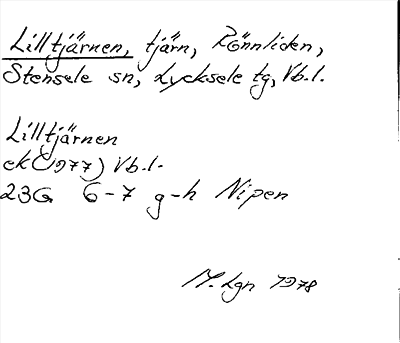 Lilltjärnen, tjärn, Rönnliden,
Stensele sn, Lycksele tg, Vb.l.
Lilltjärnen
ek (1977) Vb.l.
23G 6-7 g-h Nipen
M. Lgn 1978